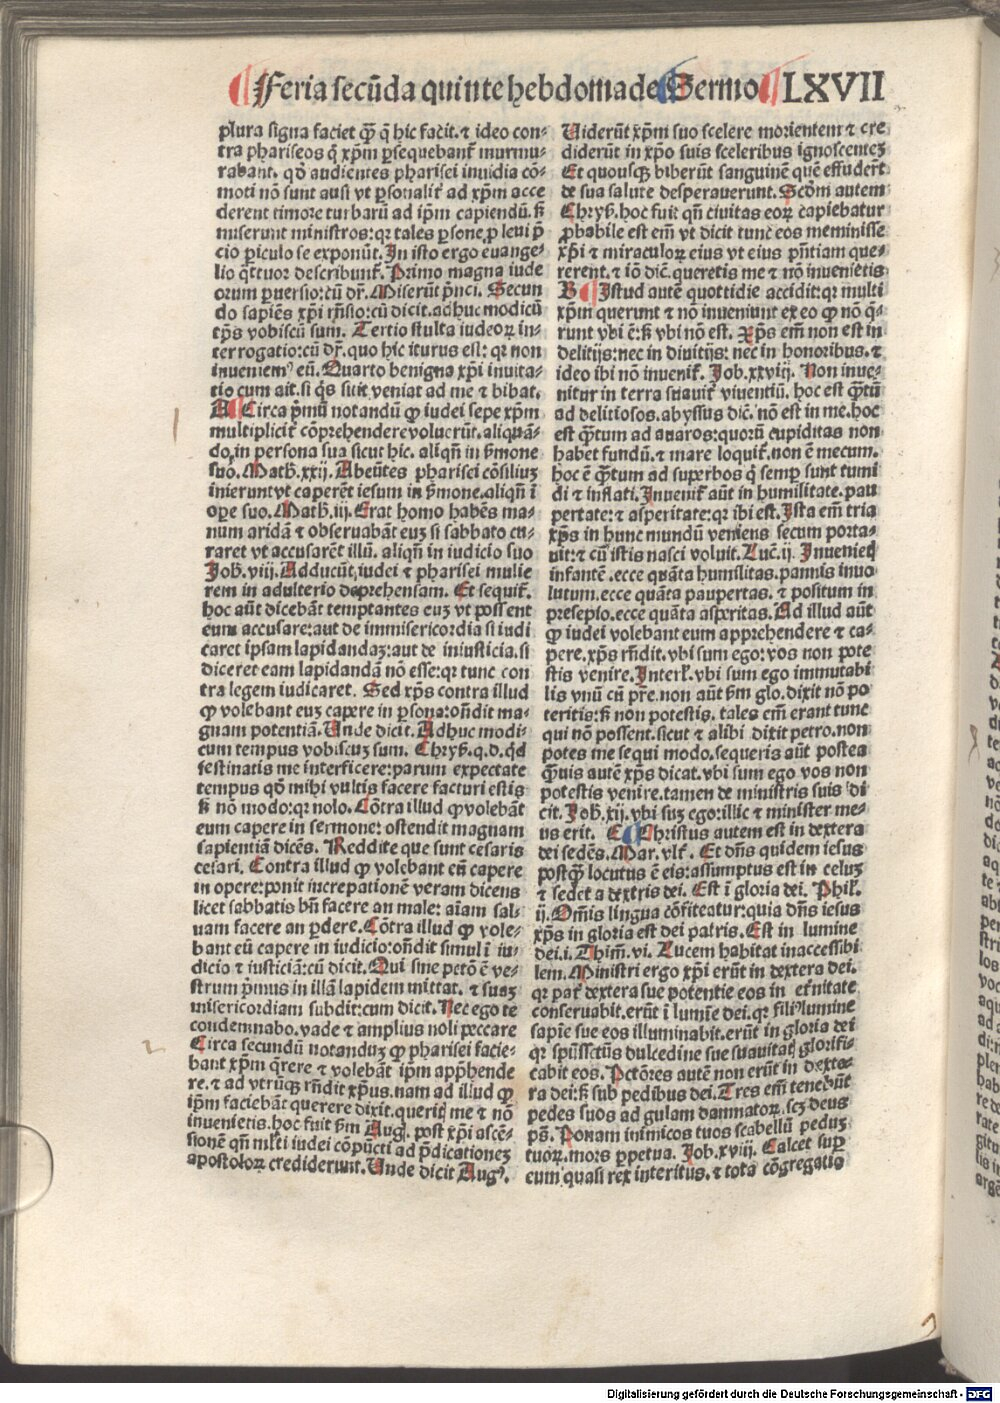 Feria secūda quinte hebdomade Sermo LXVII
plura signa faciet q̄ꝫ q̄ hic facit. ⁊ ideo con-
tra phariseos q̄ xp̄m ꝑsequebant᷑ murmu-
rabant. qd̓ audientes pharisei inuidia cō-
moti nō sunt ausi vt ꝑsonalit᷑ ad xp̄m acce
derent timore turbarū ad ip̄m capiendū. ß
miserunt ministros: qꝛ tales ꝑsone ꝓ leui p̄
cio ꝑiculo se exponūt. In isto ergo euange-
lio q̄ttuor describunt᷑. Primo magna iude
orum ꝑuersio: cū dr̄. Miserūt p̄nci. Secun
do sapiēs xp̄i rn̄sio: cū dicit. adhuc modicū
tp̄s vobiscū sum. Tertio stulta iudeoꝝ in-
terrogatio: cū dr̄. quo hic iturus est: qꝛ non
inueniemꝰ eū. Quarto benigna xp̄i inuita-
tio cum ait. si q̄s sitit veniat ad me ⁊ bibat.
A Circa p̄mū notandū ꝙ iudei sepe xp̄m
multiplicit᷑ cōprehendere volucrūt. aliquā-
do in persona sua sicut hic. aliqn̄ in ẜmone
suo. Math. xxij. Abeūtes pharisei cōsiliuꝫ
inierunt vt caperēt iesum in ẜmone. aliqn̄ ī
oꝑe suo. Math. iij. Erat homo habēs ma-
num aridā ⁊ obseruabāt euꝫ si sabbato cu-
raret vt accusarēt illū. aliqn̄ in iudicio suo
Joh. viij. Adducūt iudei ⁊ pharisei mulie
rem in adulterio deprehensam. Et sequit᷑.
hoc aūt dicebāt temptantes euꝫ vt possent
eum accusare: aut de immisericordia si iudi
caret ipsam lapidandaꝫ: aut de iniusticia. si
diceret eam lapidandā nō esse: qꝛ tunc con
tra legem iudicaret. Sed xp̄s contra illud
ꝙ volebant euꝫ capere in ꝑsona: on̄dit ma-
gnam potentiā. Unde dicit. Adhuc modi-
cum tempus vobiscuꝫ sum. Chryß. q. d. qd̓
festinatis me interficere: parum expectate
tempus qd̓ mihi vultis facere facturi estis
ß nō modo: qꝛ nolo. Cōtra illud ꝙ volebāt
eum capere in sermone: ostendit magnam
sapientiā dicēs. Reddite que sunt cesaris
cesari. Contra illud ꝙ volebant eū capere
in opere: ponit increpationē veram dicens
licet sabbatis bn̄ facere an male: aīam sal-
uam facere an ꝑdere. Cōtra illud ꝙ vole-
bant eū capere in iudicio: on̄dit simul ī iu-
dicio ⁊ iusticiā: cū dicit. Qui sine petō ē ve-
strum p̄mus in illā lapidem mittat. ⁊ suaꝫ
misericordiam subdit: cum dicit. Nec ego te
condemnabo. vade ⁊ amplius noli peccare
Circa secundū notanduꝫ ꝙ pharisei facie-
bant xp̄m q̄rere ⁊ volebāt ip̄m app̄hende
re. ⁊ ad vtrūqꝫ rn̄dit xp̄us. nam ad illud ꝙ
ip̄m faciebāt querere dixit. queritꝭ me ⁊ nō
inuenietis. hoc fuit ẜm Augꝰ. post xp̄i ascē-
sionē qn̄ mlti iudei cōpūcti ad p̄dicationeꝫ
apostoloꝝ crediderunt. Unde dicit Augꝰ.
Uiderūt xp̄m suo scelere morientem ⁊ cre
diderūt in xp̄o suis sceleribus ignoscenteꝫ
Et quousqꝫ biberūt sanguinē quē effuderūt
de sua salute desperauerunt. Scd̓m autem
Chryß. hoc fuit qn̄ ciuitas eoꝝ capiebatur
ꝓbabile est em̄ vt dicit tunc eos meminisse
xp̄i ⁊ miraculoꝝ eius vt eius pn̄tiam que-
rerent. ⁊ iō dic̄. queretis me ⁊ nō inuenietis
B Istud autē quottidie accidit: qꝛ multi
xp̄m querunt ⁊ nō inueniunt ex eo ꝙ nō q̄-
runt vbi ē: ß vbi nō est. Xp̄s em̄ non est in
delitijs: nec in diuitijs: nec in honoribus. ⁊
ideo ibi nō inuenit᷑. Job. xxviij. Non inue-
nitur in terra suauit᷑ viuentiū. hoc est q̄tū
ad delitiosos. abyssus dic̄. nō est in me. hoc
est q̄tum ad auaros: quorū cupiditas non
habet fundū. ⁊ mare loquit᷑. non ē mecum.
hoc ē q̄tum ad superbos q̄ semꝑ sunt tumi
di ⁊ inflati. Inuenit᷑ aūt in humilitate. pau
pertate: ⁊ asperitate: qꝛ ibi est. Ista em̄ tria
xp̄s in hunc mundū veniens secum porta-
uit: ⁊ cū istis nasci voluit. Luc̄. ij. Inuenietꝭ
infantē. ecce quāta humilitas. pannis inuo
lutum. ecce quāta paupertas. ⁊ positum in
presepio. ecce quāta asꝑitas. Ad illud aūt
ꝙ iudei volebant eum apprehendere ⁊ ca-
pere. xp̄s rn̄dit. vbi sum ego: vos non pote
stis venire. Interl̓. vbi sum ego immutabi
lis vnū cū pr̄e. non aūt ẜm glo. dixit nō po
teritis: ß non potestis. tales em̄ erant tunc
qui nō possent. sicut ⁊ alibi dixit petro. non
potes me sequi modo. sequeris aūt postea
q̄uis autē xp̄s dicat. vbi sum ego vos non
potestis venire. tamen de ministris suis di
cit. Joh. xij. vbi suꝫ ego: illic ⁊ minister me-
us erit. C Christus autem est in dextera
dei sedēs. Mar. vlt̓. Et dn̄s quidem iesus
postq̄ꝫ locutus ē eis: assumptus est in celuꝫ
⁊ sedet a dextris dei. Est ī gloria dei. Phil̓.
ij. Om̄is lingua cōfiteatur: quia dn̄s iesus
xp̄s in gloria est dei patris. Est in lumine
dei. i. Thim̄. vi. Lucem habitat inaccessibi
lem. Ministri ergo xp̄i erūt in dextera dei.
qꝛ pat᷑ dextera sue potentie eos in et̓nitate
conseruabit. erūt ī lumīe dei. qꝛ filiꝰ lumine
sapīe sue eos illuminabit. erūt in gloria dei
qꝛ spūssct̄us dulcedine sue suauitatꝭ glorifi-
cabit eos. Pctōres autē non erūt in dexte-
ra dei: ß sub pedibus dei. Tres em̄ tenebūt
pedes suos ad gulam damnatoꝝ. scꝫ deus
pß. Ponam inimicos tuos scabellū peduꝫ
tuoꝝ. mors ꝑpetua. Job. xviij. Calcet suꝑ
eum quasi rex interitus. ⁊ tota cōgregatio
Digitalisierung gefördert durch die Deutsche Forschungsgemeinschaft - DFG